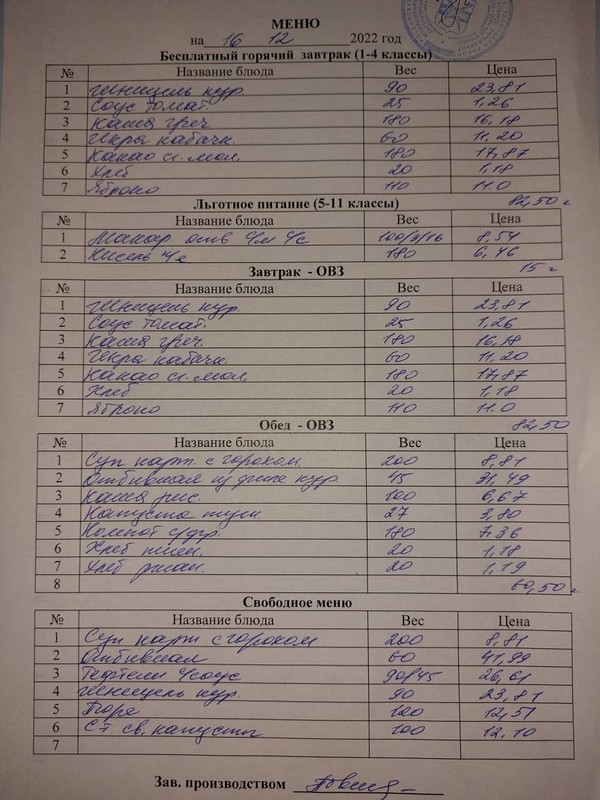 МЕНЮ
на 16 12 2022 год
Бесплатный горячий завтрак (1-4 классы)
№ Название блюда Вес Цена
1 Шницель кур. 90 23,81
2 Соус томат. 25 1,26
3 Каша греч 180 16,18
4 Икра кабачк. 60 11,20
5 Какао сл. мол. 180 17,87
6 Хлеб 20 1,18
7 Яблоко 110 11.0
Льготное питание (5-11 классы) 82,50 г
№ Название блюда Вес Цена
1 Макар отв 8,54
2 Кисель 180 6,46
Завтрак - ОВЗ 15 г
№ Название блюда Вес Цена
1 Шницель кур. 90 23,81
2 Соус томат. 25 1,26
3 Каша греч. 180 16,18
4 Икра кабачк. 60 11,20
5 Какао сл. мол. 180 17,87
6 Хлеб 20 1,18
7 Яблоко 110 11.0
Обед - ОВЗ 82,50
№ Название блюда Вес Цена
1 Суп карт. с горохом 200 8,81
2 Отбивная из филе кур 45 31,49
3 Каша рис. 100 6,67
4 Капуста туш 27 3,80
5 Компот с/фр. 180 7.36
6 Хлеб пшен. 20 1,18
7 Хлеб ржан. 20 1,19
8 60,50 г
Свободное меню
№ Название блюда Вес Цена
1 Суп карт с горохом 200 8,81
2 Отбивная 60 41,99
3 Тефтели с/соус 90/45 26,61
4 Шницель кур. 90 23,81
5 Пюре 100 12,51
6 С-т св. капусты 100 12,10
7
Зав. производством